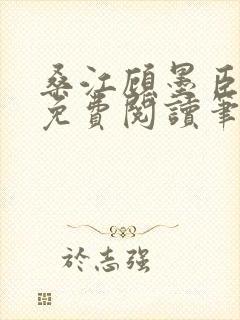 桑江顾墨臣
免費閱讀筆
於志强